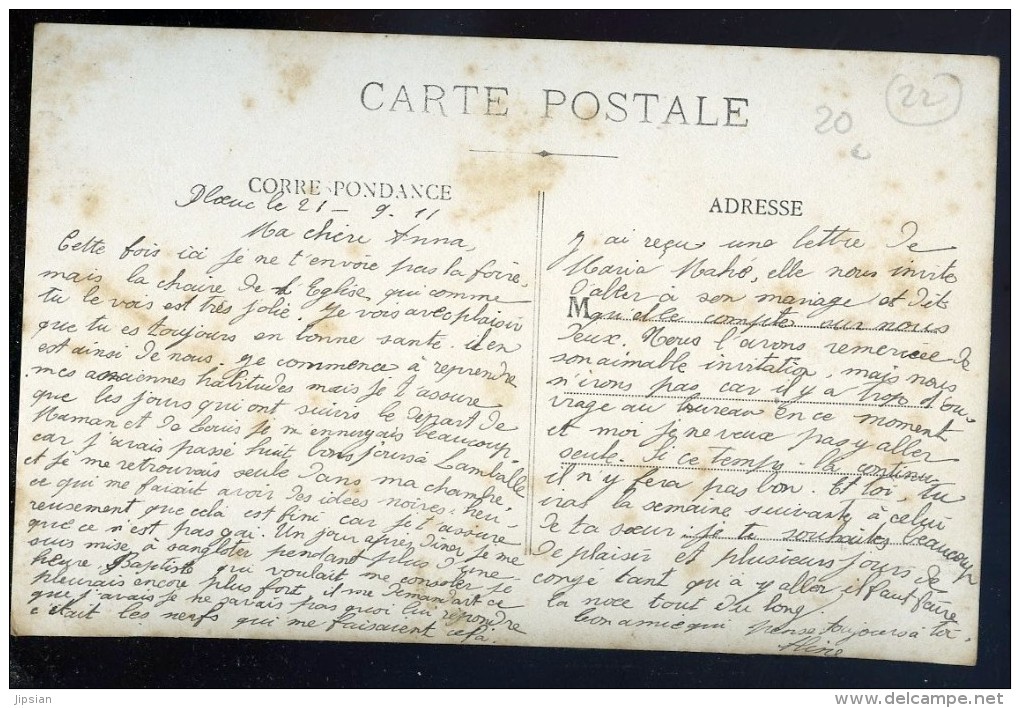 CARTE POSTALE
20
22
CORRESPONDANCE
Ploeuc le 21 - 9. 11
Ma chère Anna,
Cette fois ici je ne t'envoie pas la foire,
mais la chaire de l'Eglise, qui comme
tu le vois est très jolie. Je vois avec plaisir
que tu es toujours en bonne santé. il en
est ainsi de nous, je commence à reprendre
mes anciennes habitudes mais je t'assure
que les jours qui ont suivis le départ de
Maman et de Louis je m'ennuyais beaucoup
car j'avais passé huit bons jours à Lamballe
et je me retrouvais seule dans ma chambre,
ce qui me faisait avoir des idées noires, heu-
reusement que cela est fini car je t'assure
que ce n'est pas gai. Un jour après diner je me
suis mise à sangloter pendant plus d'une
heure Baptiste qui voulait me consoler je
pleurais encore plus fort, il me demandait ce
que j'avais je ne savais pas quoi lui répondre
c'était les nerfs qui me faisaient cela.
ADRESSE
J'ai reçu une lettre de
Maria Mahé, elle nous invite
d'aller à son mariage et dit
M
qu'elle compte sur nous
deux. Nous l'avons remerciée de
son aimable invitation, mais nous
n'irons pas car il y a trop d'ou-
vrage au bureau en ce moment
et moi je ne veux pas y aller
seule. Si ce temps-là continu
il n'y fera pas bon. Et toi, tu
iras la semaine suivante à celui
de ta sœur, je te souhaites beaucoup
de plaisir et plusieurs jours de
congé tant qu'à y aller, il faut faire
la noce tout du long.
ton amie qui pense toujours à toi.
jipsian
delcampe.net